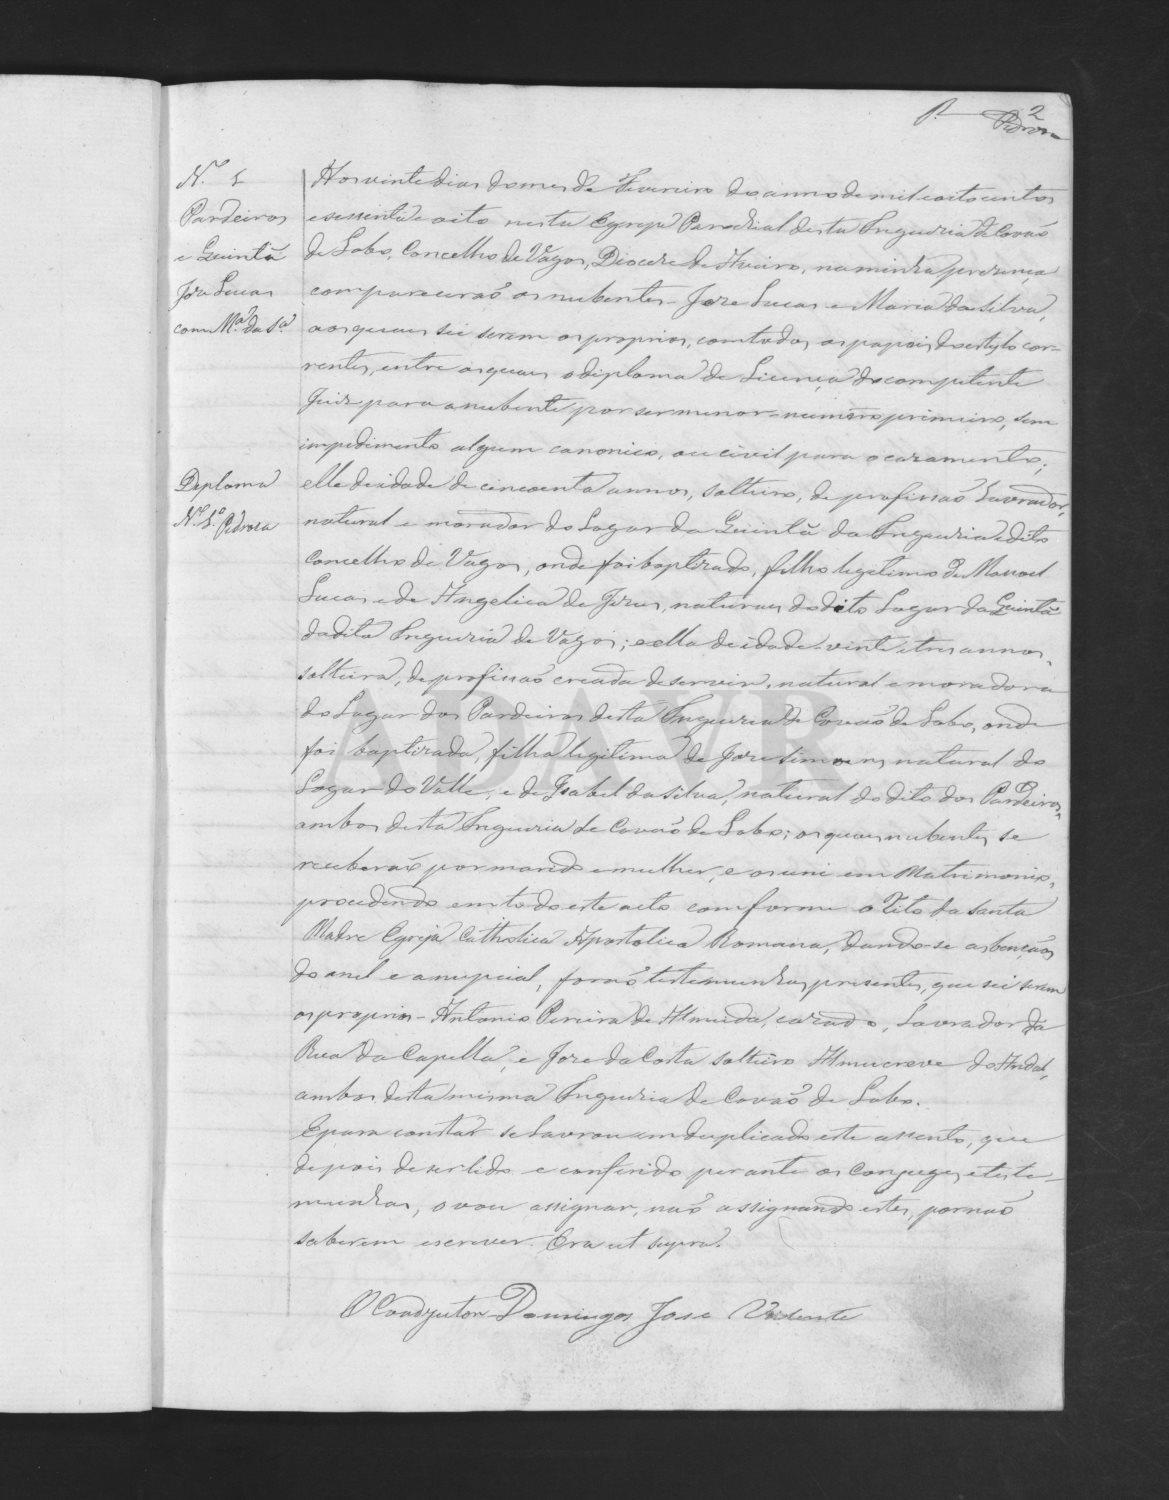 2
P. Pedroza
N.º 1
Pardeiros
e Quintã
Jose Lucas
com M.ª da S.ª
Aos vinte dias do mes de Fevereiro do anno de mil oito centos
e sessenta e oito nesta Egreja Parochial desta Freguezia de Covaõ
de Lobo, Concelho de Vagos, Diocese de Aveiro, na minha presença
comparecerão os nubentes - Jose Lucas e Maria da Silva,
aos quaes sei serem os proprios, com todos os papeis do estylo cor-
rentes, entre os quaes o diploma de Licença do competente
Juiz para a nubente por ser menor - numero primeiro, sem
impedimento algum canonico, ou civil para o casamento;
Deploma
N.º 1.º Pedroza
elle de idade de cincoenta annos, solteiro, de profissaõ Lavrador,
natural e morador do Lugar da Quintã da Freguezia e dito
Concelho de Vagos, onde foi baptizado, filho legitimo de Manoel
Lucas e de Angelica de Jezus, naturaes do dito Lugar da Quintã
da dita Freguezia de Vagos; e ella de idade vinte e tres annos,
solteira, de profissaõ creada de servir, natural e moradora
do Lugar dos Pardeiros desta Freguezia de Covaõ de Lobo, onde
foi baptizada, filha legitima de Jose Simoens, natural do
Lugar do Valle, e de Isabel da Silva, natural do dito dos Pardeiros,
ambos desta Freguezia de Covaõ de Lobo; os quaes nubentes se
receberaõ por marido e mulher, e os uni em Matrimonio,
procedendo em todo este acto conforme o Rito da Santa
Madre Egreja Catholica Apostolica Romana, dando-se as bençãos
do anel e a nupcial, foraõ testemunhas presentes, que sei serem
os proprios - Antonio Pereira de Almeida, cazado, Lavrador da
Rua da Capella, e Jose da Costa solteiro Almucreve do Andal,
ambos desta mesma Freguezia de Covaõ de Lobo.
E para constar se lavrou em duplicado este assento, que
depois de ser lido e conferido perante os conjuges e teste-
munhas, o vou assignar, naõ assignando estes, por naõ
saberem escrever. Era ut supra.
O Coadjutor Domingos Jose Vidente
ADAVR